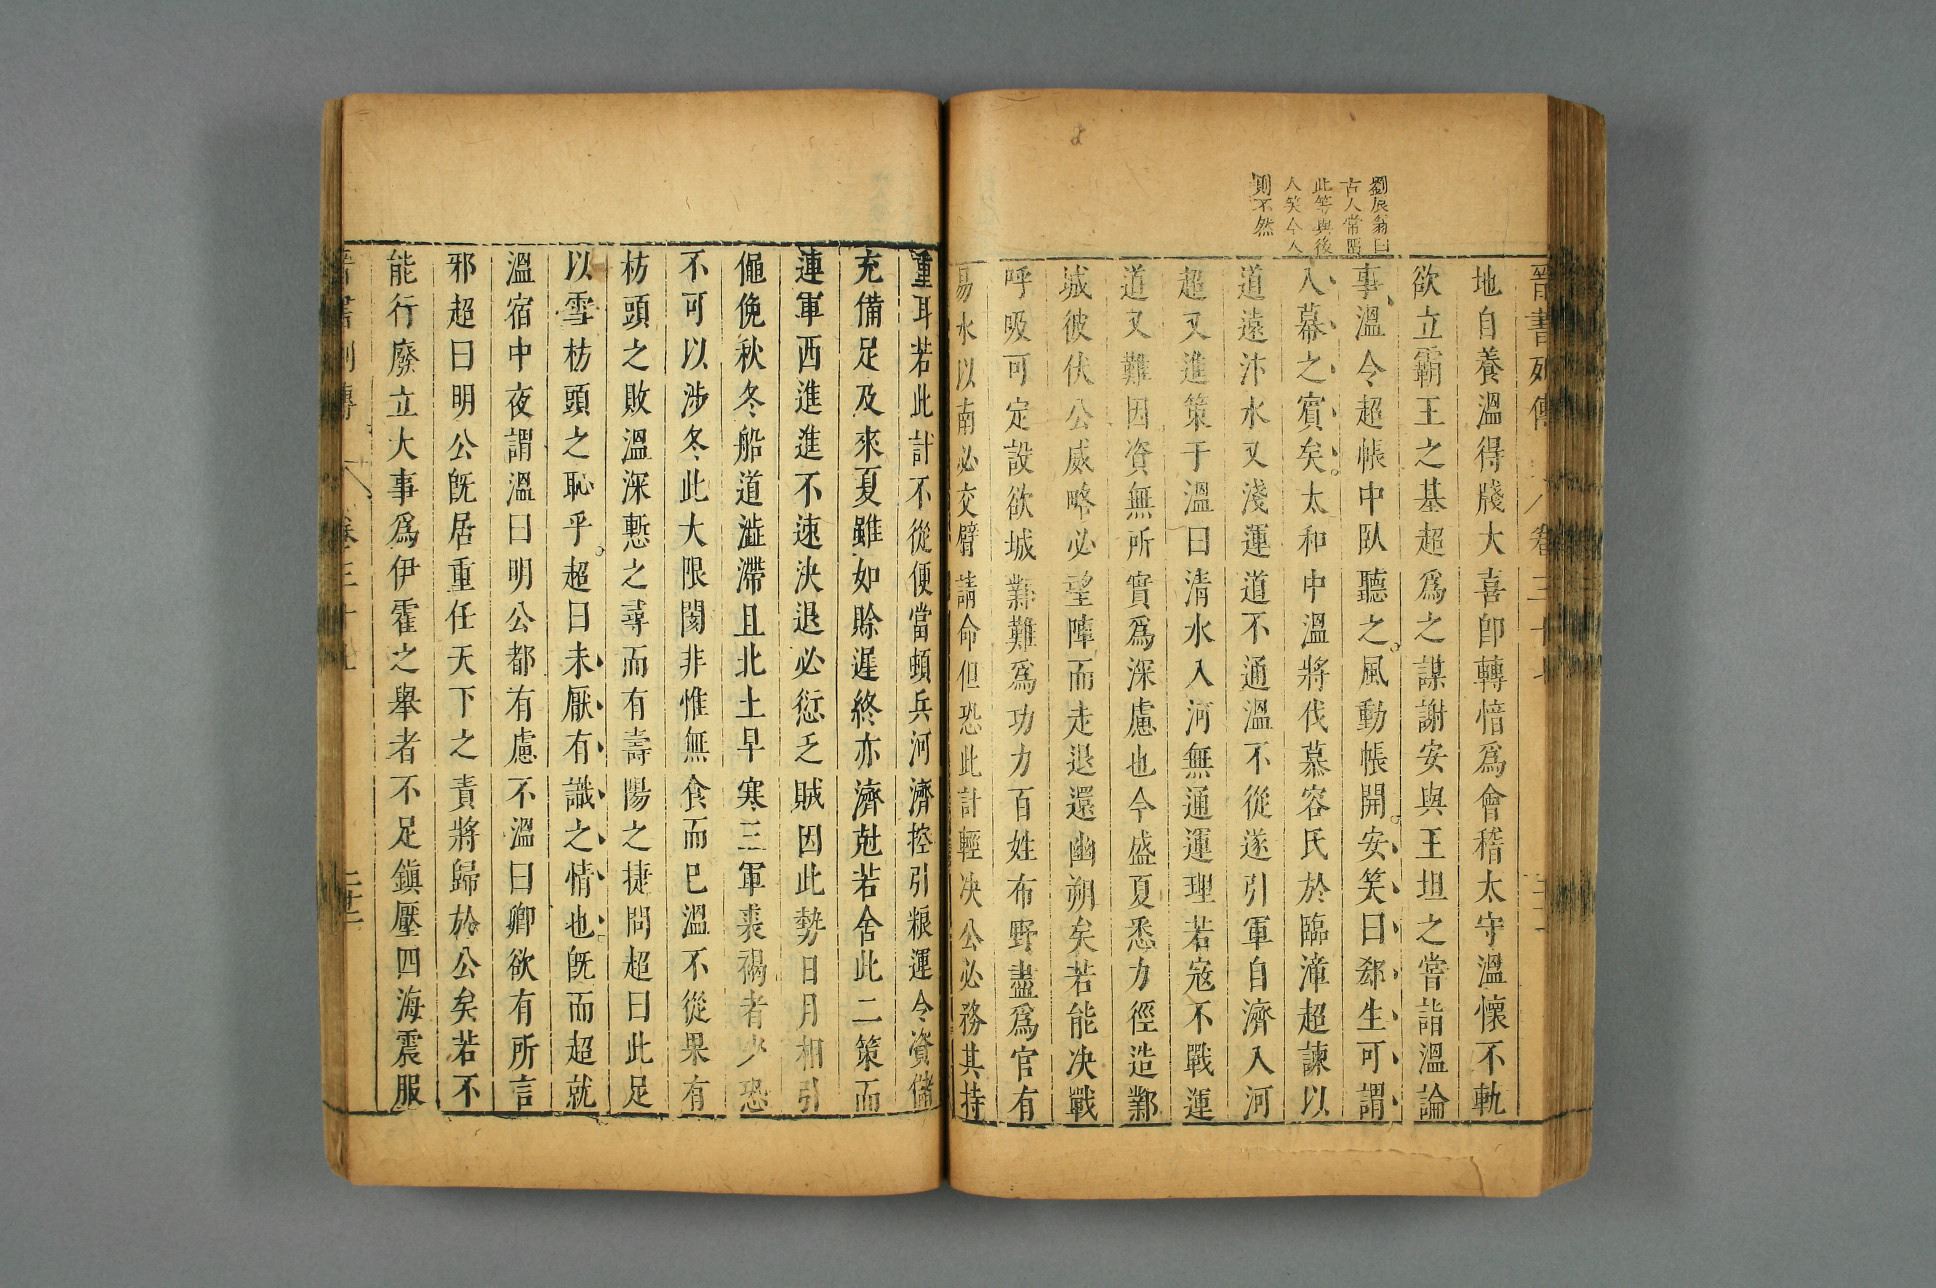 劉辰翁曰
古人常留
此等與後
人笑今人
則不然
晉書列傳 卷三十七
地自養溫得牋大喜卽轉愔爲會稽太守溫懷不軌
欲立霸王之基超爲之謀謝安與王坦之嘗詣溫論
事溫令超帳中臥聽之風動帳開安笑曰郄生可謂
入幕之賓矣太和中溫將伐慕容氏於臨漳超諫以
道遠汴水又淺運道不通溫不從遂引軍自濟入河
超又進策于溫曰清水入河無通運理若寇不戰運
道又難因資無所實爲深慮也今盛夏悉力徑造鄴
城彼伏公威略必望陣而走退還幽朔矣若能决戰
呼吸可定設欲城鄴難爲功力百姓布野盡爲官有
易水以南必交臂請命但恐此計輕决公必務其持
重耳若此計不從便當頓兵河濟控引粮運令資儲
充備足及來夏雖如賒遲終亦濟尅若舍此二策而
連軍西進進不速決退必愆乏賊因此勢日月相引
僶俛秋冬船道澁滯且北土早寒三軍裘褐者少恐
不可以涉冬此大限閡非惟無食而已溫不從果有
枋頭之敗溫深慙之尋而有壽陽之捷問超曰此足
以雪枋頭之恥乎超曰未厭有識之情也旣而超就
溫宿中夜謂溫曰明公都有慮不溫曰卿欲有所言
邪超曰明公旣居重任天下之責將歸於公矣若不
能行廢立大事爲伊霍之舉者不足鎭壓四海震服
晉書列傳 卷三十七